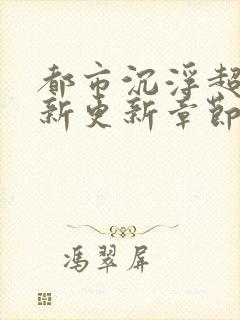 都市沉浮超
新更新章節
馮翠屏